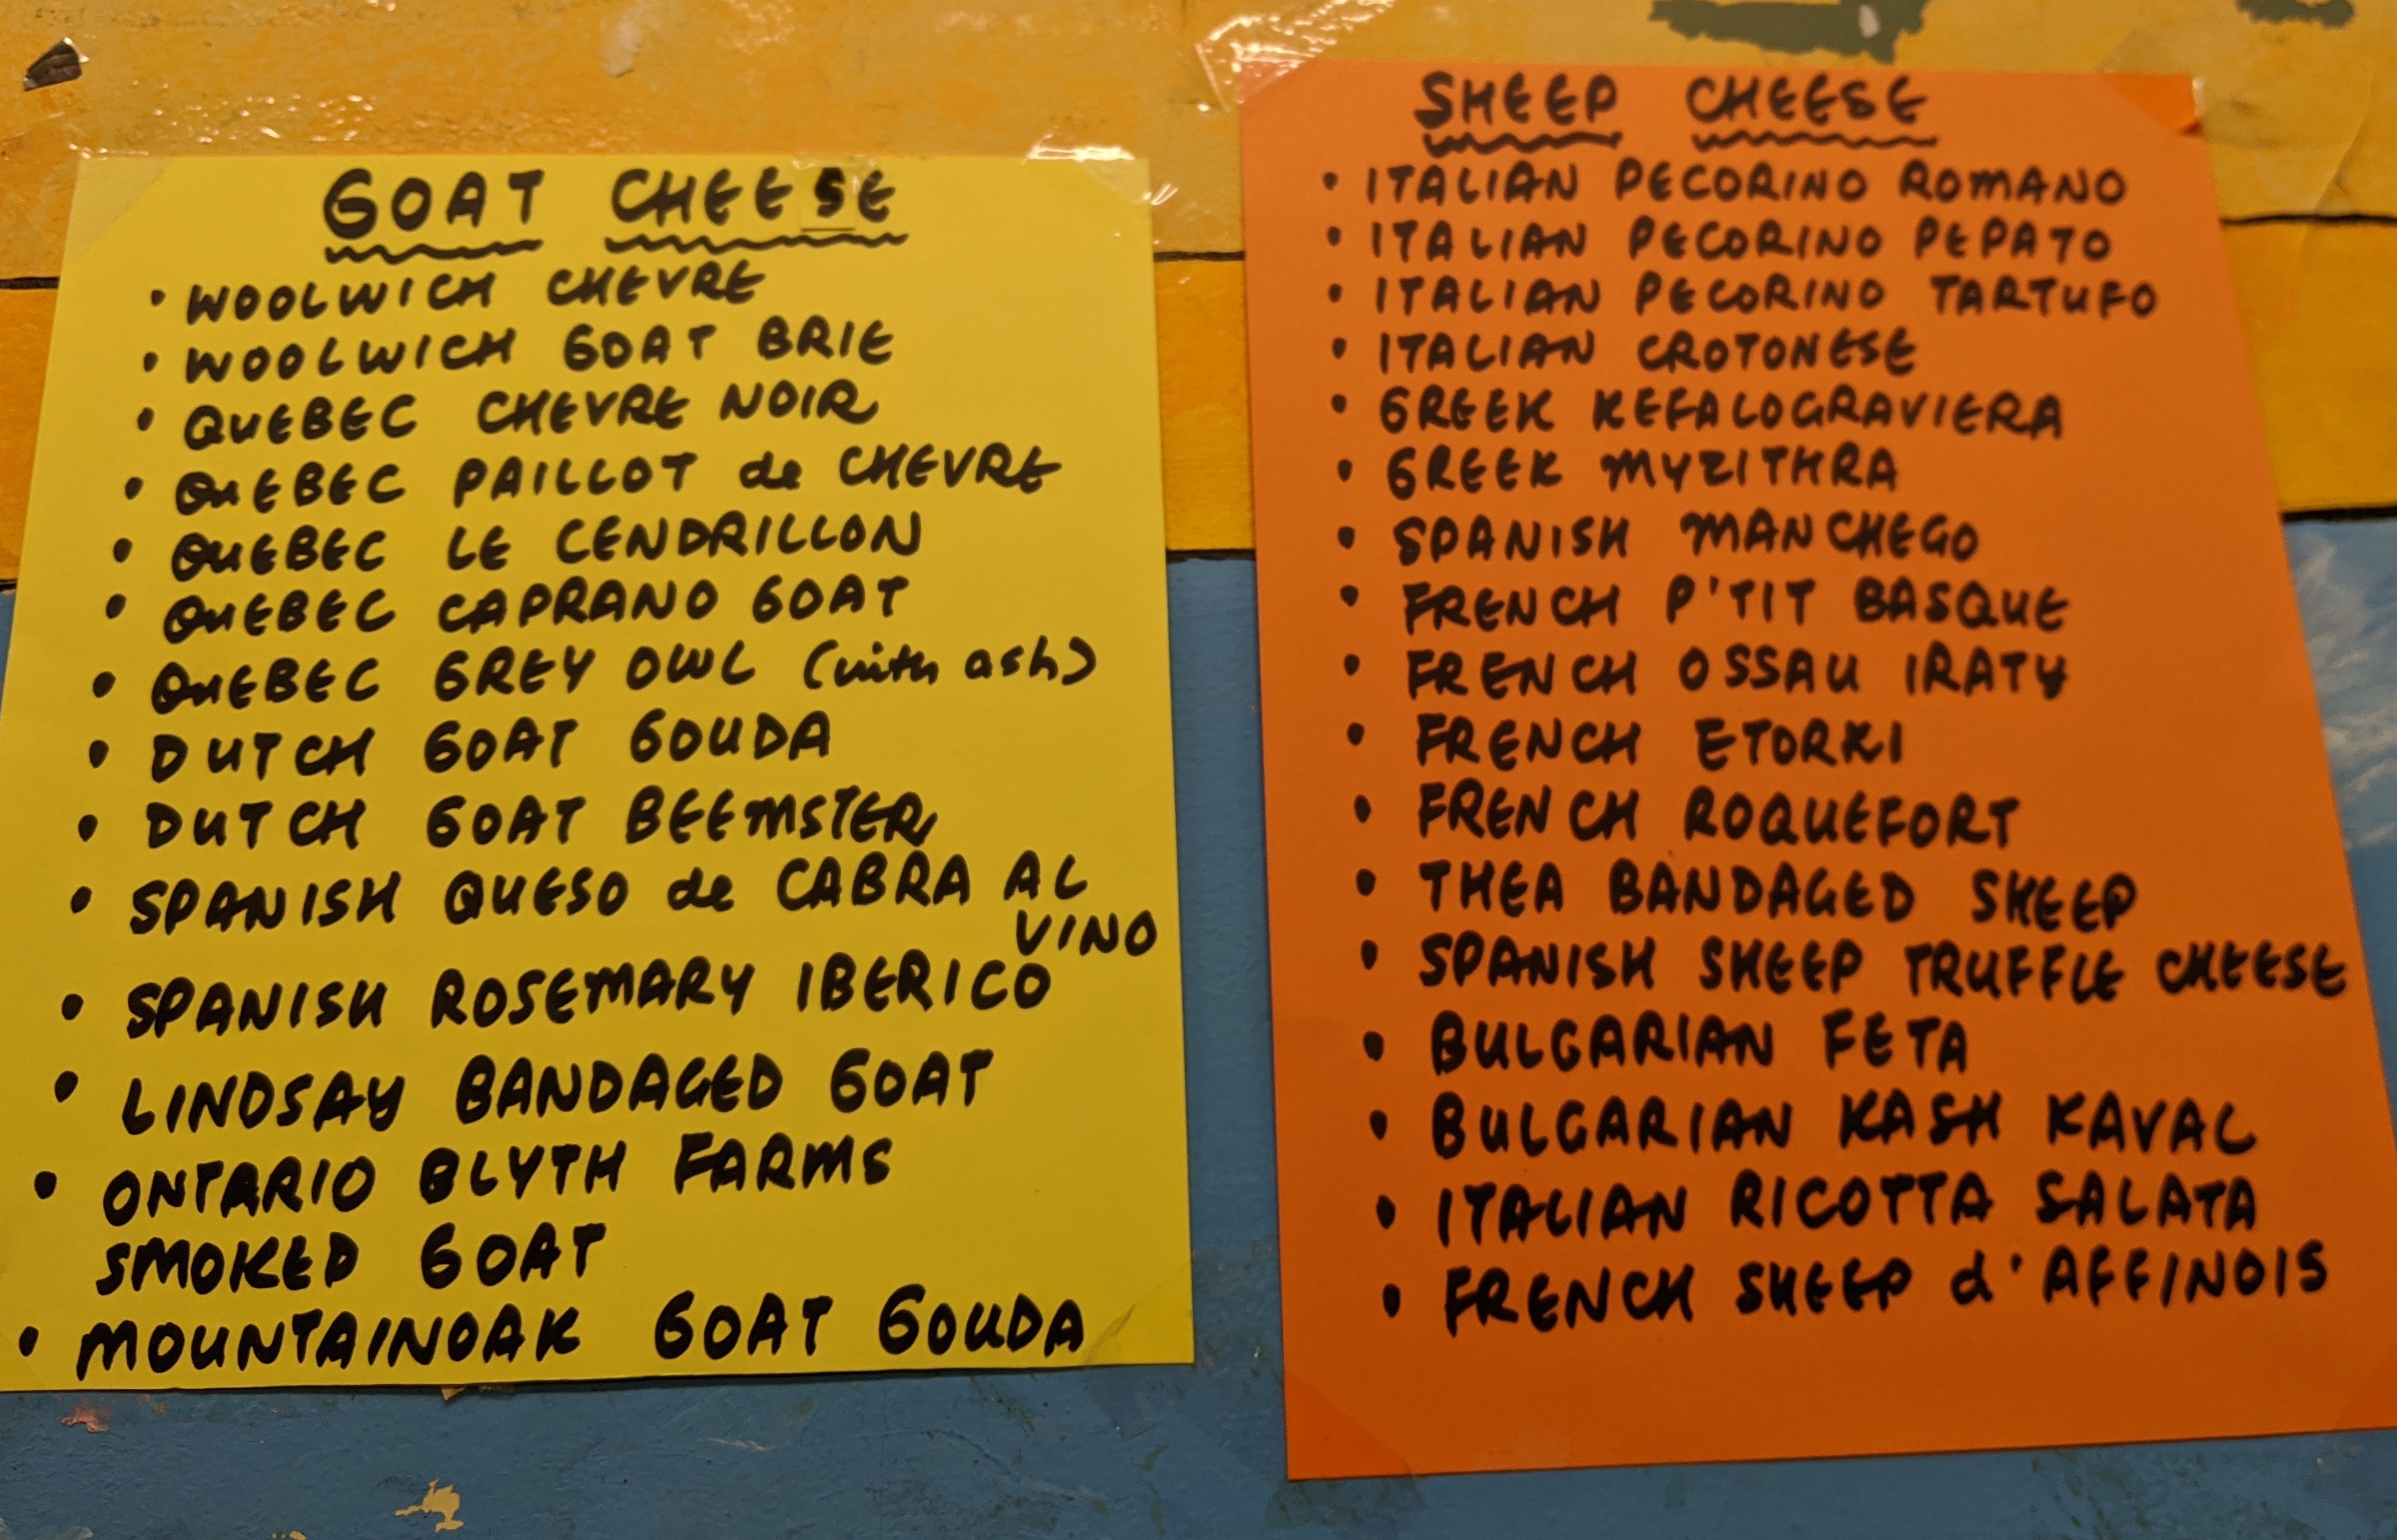 GOAT CHEESE
• WOOLWICH CHEVRE
• WOOLWICH GOAT BRIE
• QUEBEC CHEVRE NOIR
• QUEBEC PAILLOT de CHEVRE
• QUEBEC LE CENDRILLON
• QUEBEC CAPRANO GOAT
• QUEBEC GREY OWL (with ash)
• DUTCH GOAT GOUDA
• DUTCH GOAT BEEMSTER
• SPANISH QUESO de CABRA AL
VINO
• SPANISH ROSEMARY IBERICO
• LINDSAY BANDAGED GOAT
• ONTARIO BLYTH FARMS
SMOKED GOAT
• MOUNTAINOAK GOAT GOUDA
SHEEP CHEESE
• ITALIAN PECORINO ROMANO
• ITALIAN PECORINO PEPATO
• ITALIAN PECORINO TARTUFO
• ITALIAN CROTONESE
• GREEK KEFALOGRAVIERA
• GREEK MYZITHRA
• SPANISH MANCHEGO
• FRENCH P'TIT BASQUE
• FRENCH OSSAU IRATY
• FRENCH ETORKI
• FRENCH ROQUEFORT
• THEA BANDAGED SHEEP
• SPANISH SHEEP TRUFFLE CHEESE
• BULGARIAN FETA
• BULGARIAN KASH KAVAL
• ITALIAN RICOTTA SALATA
• FRENCH SHEEP d'AFFINOIS